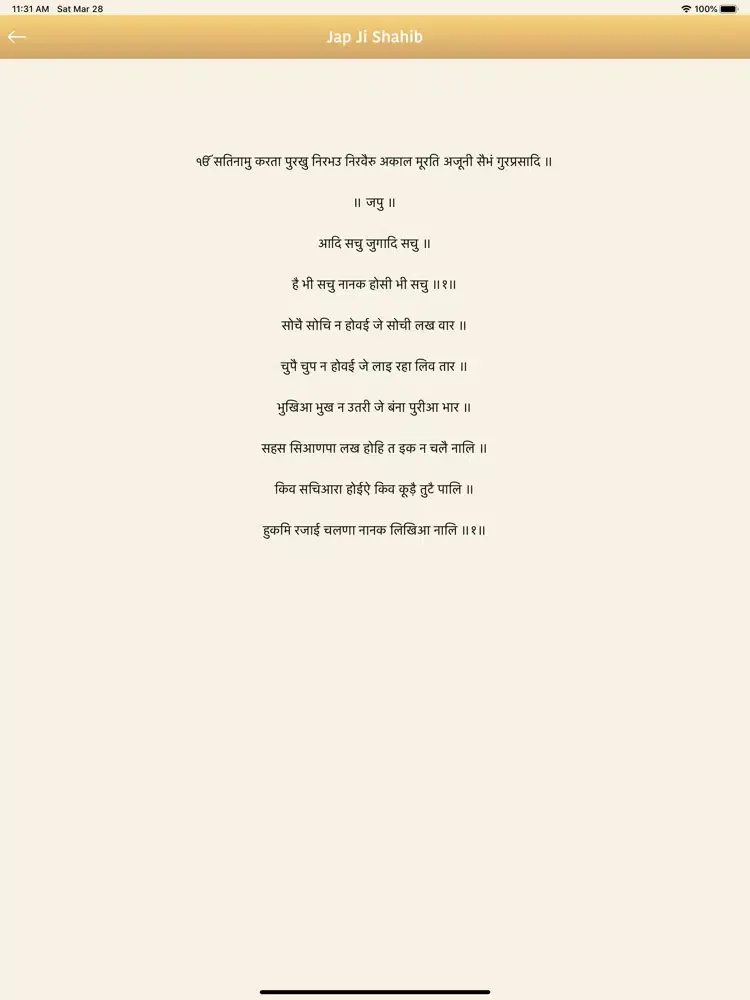 11:31 AM Sat Mar 28 100%
Jap Ji Shahib
ੴ सतिनामु करता पुरखु निरभउ निरवैरु अकाल मूरति अजूनी सैभं गुरप्रसादि ॥
॥ जपु ॥
आदि सचु जुगादि सचु ॥
है भी सचु नानक होसी भी सचु ॥१॥
सोचै सोचि न होवई जे सोची लख वार ॥
चुपै चुप न होवई जे लाइ रहा लिव तार ॥
भुखिआ भुख न उतरी जे बंना पुरीआ भार ॥
सहस सिआणपा लख होहि त इक न चलै नालि ॥
किव सचिआरा होईऐ किव कूड़ै तुटै पालि ॥
हुकमि रजाई चलणा नानक लिखिआ नालि ॥१॥